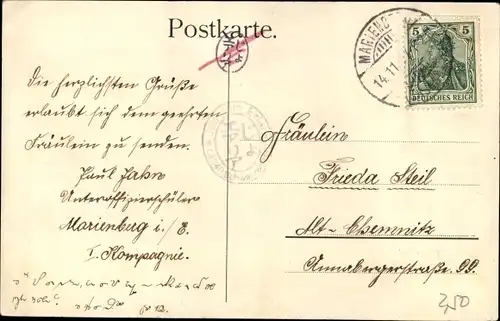 Postkarte.
MARIENB
14.11
5 5
DEUTSCHES REICH
Die herzlichsten Grüße
erlaubt sich dem geehrten
Fräulein zu senden.
Paul Jahn
Unteroffizierschüler
Marienberg i./E.
I. Kompagnie.
Fräulein
Frieda Steil
Alt-Chemnitz
Annabergerstraße 99.
3,50